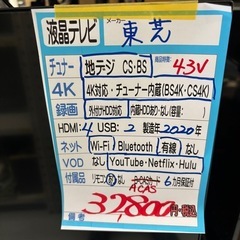 液晶テレビ メーカー 東芝
チューナー 地デジ CS・BS 商品詳細: 43V
4K 4K対応・チューナー内蔵(BS4K・CS4K)
録画 外付けHDD対応 内蔵HDDあり・なし(容量: )
HDMI: 4 USB: 2 製造年 2020年
ネット Wi-Fi Bluetooth 有線 なし
VOD なし YouTube・Netflix・Hulu
付属品 リモコン B-CASカード 6カ月保証付
ACAS
備考 37,800円(税込)